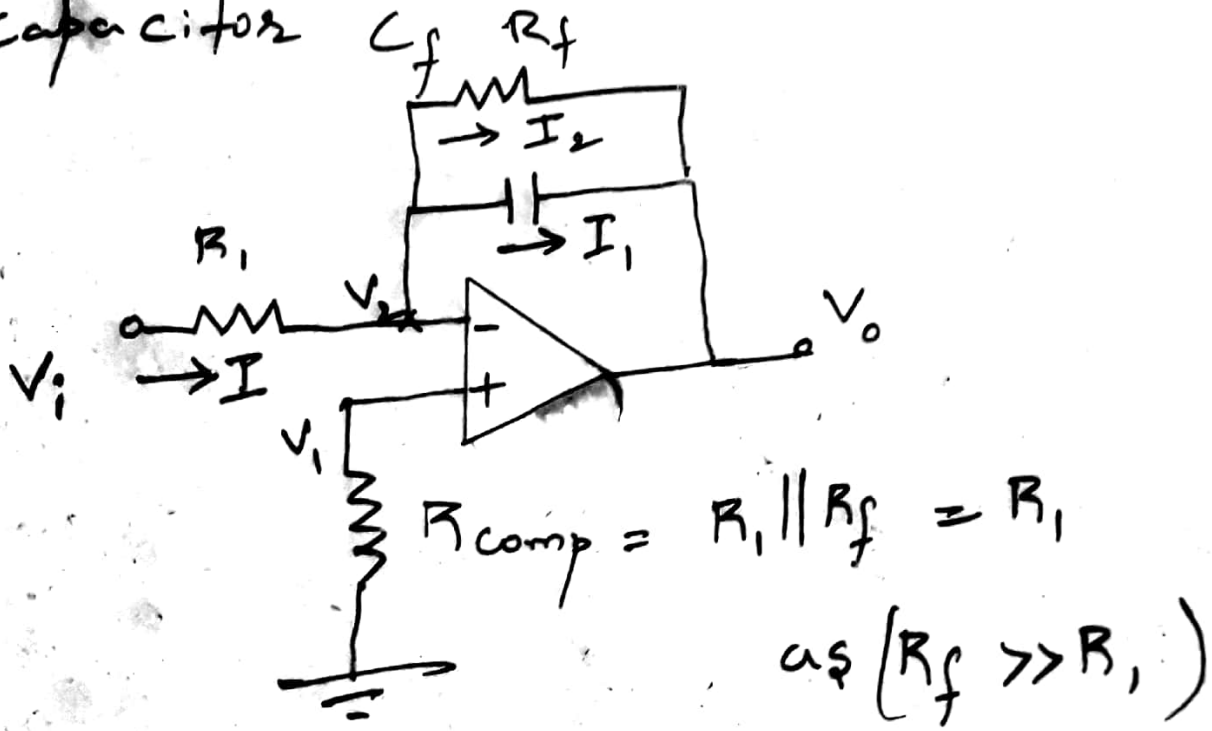 capacitor Cf Rf
→ I₂
→ I₁
R₁
V₂
Vi → I
-
+
V₀
V₁
Rcomp = R₁ || Rf = R₁
as (Rf >> R₁)